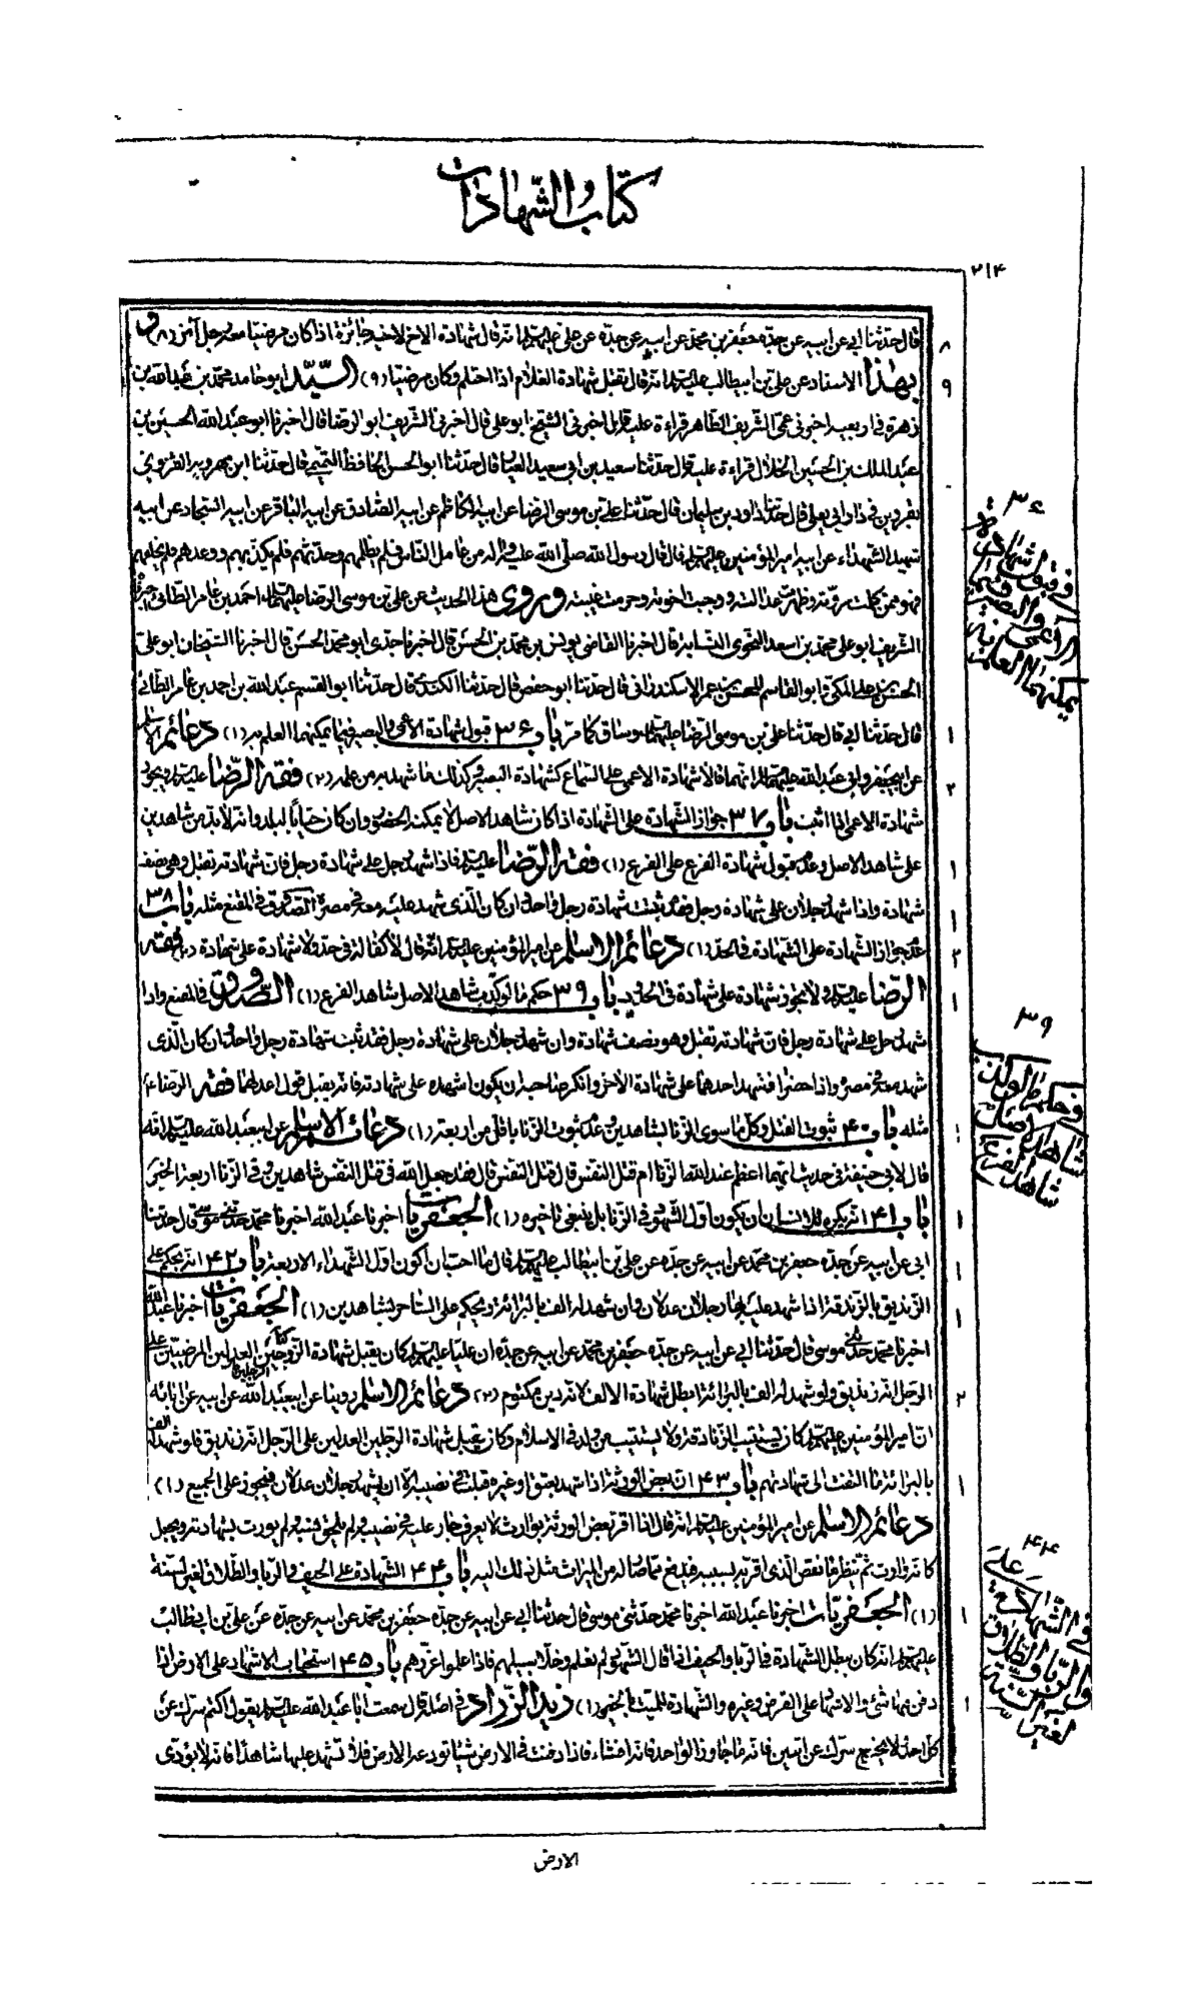 كتاب الشهادات
٢١٤
قال حدثنا ابى عن ابيه عن جده جعفر بن محمد عن ابيه عن جده عن علي عليهم السلام انه قال شهادة الاخ لاخيه جائزة اذا كان مرضيا معه رجل آخر (٨) و
بهذا الاسناد عن علي بن ابيطالب عليه السلام انه قال تقبل شهادة الغلام اذا احتلم وكان مرضيا (٩) السيد ابو حامد محمد بن عبدالله بن
زهرة في اربعينه اخبرني عمى الشريف الطاهر قراءة عليه قال اخبرني الشيخ ابو على قال اخبرنى الشريف ابو الرضا قال اخبرنا ابو عبد الله الحسين بن
عبد الملك بن الحسين الخلال قراءة عليه قال حدثنا سعيد بن ابى سعيد العيار قال حدثنا ابو الحسن الحافظ قال حدثنا ابن مهرويه القزوينى
بقزوين في دار ابى يعلى قال حدثنا داود بن سليمان قال حدثنا على بن موسى الرضا عن ابيه الكاظم عن ابيه الصادق عن ابيه الباقر عن ابيه السجاد عن ابيه
شهيد الشهداء عن ابيه امير المؤمنين عليهم السلام قال قال رسول الله صلى الله عليه واله من عامل الناس فلم يظلمهم وحدثهم فلم يكذبهم ووعدهم فلم يخلفهم
فهو ممن كملت مروته وظهرت عدالته ووجبت اخوته وحرمت غيبته وروى هذا الحديث عن على بن موسى الرضا عليهما السلام احمد بن عامر الطائى اخبرنا
الشريف ابو على محمد بن اسعد النحوى النسابة قال اخبرنا القاضى يونس بن محمد بن الحسن قال اخبرنا جدى ابو محمد الحسن قال اخبرنا الشيخان ابو على
الحسن بن على المكى وابو القاسم بن عمر الاسكندرانى قال حدثنا ابو حفص قال حدثنا الكندى قال حدثنا ابو القسم عبد الله بن احمد بن عامر الطائى
قال حدثنا ابى قال حدثنا على بن موسى الرضا عليهما السلام وساق كما مر باب ٣۶ قبول شهادة الاعمى والبصير فيما يمكنهما العلم به (١) دعائم الاسلام
عن ابيجعفر وابى عبد الله عليهما السلام انهما قالا شهادة الاعمى على السماع كشهادة البصير وكذلك ما شهد به من علمه (٢) فقه الرضا عليه السلام ويجوز
شهادة الاعمى اذا اثبت باب ٣٧ جواز الشهادة على الشهادة اذا كان شاهد الاصل لا يمكنه الحضور وان كان حيا بالبلد وانه لابد من شاهدين
على شاهد الاصل وعدم قبول شهادة الفرع على الفرع (١) فقه الرضا عليه السلام فاذا شهد رجل على شهادة رجل فان شهادته تقبل وهى نصف
شهادة واذا شهد رجلان على شهادة رجل فقد ثبت شهادة رجل واحد وان كان الذى شهد عليه معه في مصره الصدوق في المقنع مثله باب ٣٨
عدم جواز الشهادة على الشهادة في الحد (١) دعائم الاسلام عن امير المؤمنين عليه السلام انه قال لا كفالة في حد ولا شهادة على شهادة (٢) فقه
الرضا عليه السلام لا تجوز شهادة على شهادة في الحدود باب ٣٩ حكم ما لو كذب شاهد الاصل شاهد الفرع (١) الصدوق في المقنع واذا
شهد رجل على شهادة رجل فان شهادته تقبل وهو نصف شهادة وان شهد رجلان على شهادة رجل فقد ثبت شهادة رجل واحد وان كان الذى
شهد معه في مصره واذا حضرا فشهد احدهما على شهادة الآخر وانكر صاحبه ان يكون اشهده على شهادته فانه يقبل قول اعدلهما فقه الرضا ع
مثله باب ۴٠ ثبوت القتل وكل ما سوى الزنا بشاهدين وعدم ثبوت الزنا باقل من اربعة (١) دعائم الاسلام عن ابيعبد الله عليه السلام انه
قال لابى حنيفة في حديث ايهما اعظم عند الله الزنا ام قتل النفس قال قتل النفس قال فقد جعل الله في قتل النفس شاهدين وفي الزنا اربعة الخبر
باب ۴١ انه يكره للانسان ان يكون اول الشهود في الزنا بل ينبغى تاخيره (١) الجعفريات اخبرنا عبد الله اخبرنا محمد حدثنى موسى قال حدثنا
ابى عن ابيه عن جده جعفر بن محمد عن ابيه عن جده عن على بن ابيطالب عليهم السلام قال ما احب ان اكون اول الشهداء الاربعة باب ۴٢ انه يحكم على
الزنديق بالزندقة اذا شهد عليه بها رجلان عدلان وان شهد له الف بالبرائة ويحكم على الساحر بشاهدين (١) الجعفريات اخبرنا عبد الله
اخبرنا محمد حدثنى موسى قال حدثنا ابى عن ابيه عن جده جعفر بن محمد عن ابيه عن جده ان عليا عليه السلام كان يقبل شهادة الرجلين العدلين المرضيين على
الرجل انه زنديق ولو شهد له الف بالبرائة ابطل شهادة الالف لانه دين مكتوم (٢) دعائم الاسلام روينا عن ابيعبد الله عن ابيه عن ابائه
ان امير المؤمنين عليه السلام كان يستتيب الزنادقة ولا يستتيب من ولد في الاسلام وكان يقبل شهادة الرجلين العدلين على الرجل انه زنديق فلو شهد له الف
بالبرائة ما التفت الى شهادتهم باب ۴٣ ان بعض الورثة اذا شهد بعتق او غيره قبلت في نصيبه الا ان يشهد رجلان عدلان فيجوز على الجميع (١)
دعائم الاسلام عن امير المؤمنين عليه السلام انه قال اذا اقر بعض الورثة بوارث لا يعرف جاز عليه في نصيبه ولم يلحق نسبه ولم يورث بشهادته ويجعل
كانه وارث ثم ينظر ما نقص الذى اقر به بسببه فيدفع مما صار له من الميراث مثل ذلك اليه باب ۴۴ الشهادة على الحيف والربا والطلاق لغير السنة
(١) الجعفريات اخبرنا عبد الله اخبرنا محمد حدثنى موسى قال حدثنا ابى عن ابيه عن جده جعفر بن محمد عن ابيه عن جده عن على بن ابيطالب
عليهم السلام انه كان يبطل الشهادة في الربا والحيف اذا قال الشهود لم نعلم وخلا سبيلهم فاذا علموا عزرهم باب ۴۵ استحباب الاشهاد على الارض اذا
دفن فيها شئ والاشهاد على القرض وغيره والشهادة للميت بالخير (١) زيد الزراد في اصله قال سمعت ابا عبد الله عليه السلام يقول اكتم سرك عن
كل احد ولا يخرج سرك عن اثنين فانه ما جاوز الواحد فانه افشاء فاذا دفنت في الارض شيئا تودعه الارض فلا تشهد عليها شاهدا فانه لا يؤدى
الارض
٣۶
في قبول شهادة
الاعمى والبصير فيما
يمكنهما العلم به
٣٩
في حكم ما لو كذب
شاهد الاصل
شاهد الفرع
۴۴
في الشهادة على
والربا والطلاق
لغير السنة